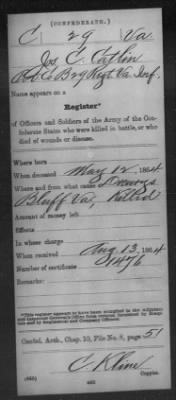 (CONFEDERATE.)
C 29 Va
Jos C. Catlin
Co. C 29 Regt Va Inf.
Name appears on a
Register*
of Officers and Soldiers of the Army of the Con-
federate States who were killed in battle, or who
died of wounds or disease.
Where born
When deceased May 12, 1864
Where and from what cause Drewrys
Bluff Va, Killed
Amount of money left
Effects
In whose charge
When received Aug 13, 1864
Number of certificate 1476
Remarks:
*This register appears to have been compiled in the Adjutant
and Inspector General's Office from returns furnished by Hospitals
and by Regimental and Company Officers.
Confed. Arch., Chap. 10, File No. 8, page 51
C. Kline
Copyist.